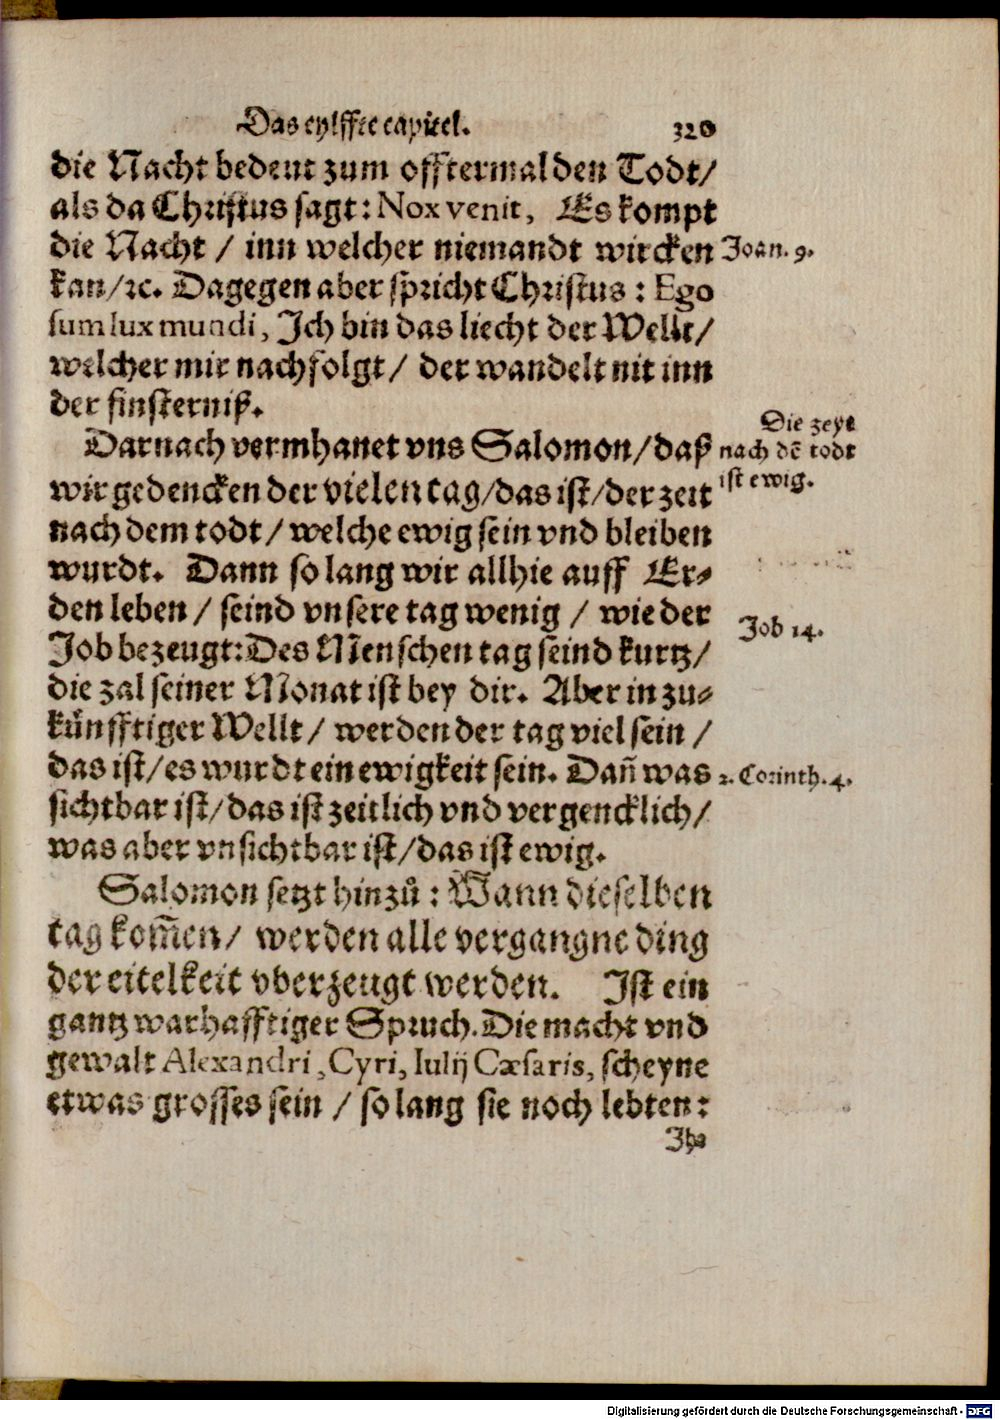 Das eylffte capitel. 320
die Nacht bedeut zum offtermal den Todt/
als da Christus sagt: Nox venit, Es kompt
die Nacht / inn welcher niemandt wircken
Joan. 9.
kan/ꝛc. Dagegen aber spricht Christus : Ego
sum lux mundi, Ich bin das liecht der Wellt/
welcher mir nachfolgt/ der wandelt nit inn
der finsterniß.
Darnach vermhanet vns Salomon/daß
wir gedencken der vielen tag/das ist/der zeit
nach dem todt/ welche ewig sein vnd bleiben
wurdt. Dann so lang wir allhie auff Er-
den leben / seind vnsere tag wenig / wie der
Job bezeugt: Des Menschen tag seind kurtz/
die zal seiner Monat ist bey dir. Aber in zu-
kuͤnfftiger Wellt / werden der tag viel sein /
das ist/es wurdt ein ewigkeit sein. Dañ was
sichtbar ist/das ist zeitlich vnd vergencklich/
was aber vnsichtbar ist/das ist ewig.
Die zeyt
nach dẽ todt
ist ewig.
Job 14.
2. Corinth. 4.
Salomon setzt hinzů : Wann dieselben
tag kom̃en/ werden alle vergangne ding
der eitelkeit vberzeugt werden. Ist ein
gantz warhafftiger Spruch. Die macht vnd
gewalt Alexandri, Cyri, Iulij Cæsaris, scheyne
etwas grosses sein / so lang sie noch lebten:
Ihr